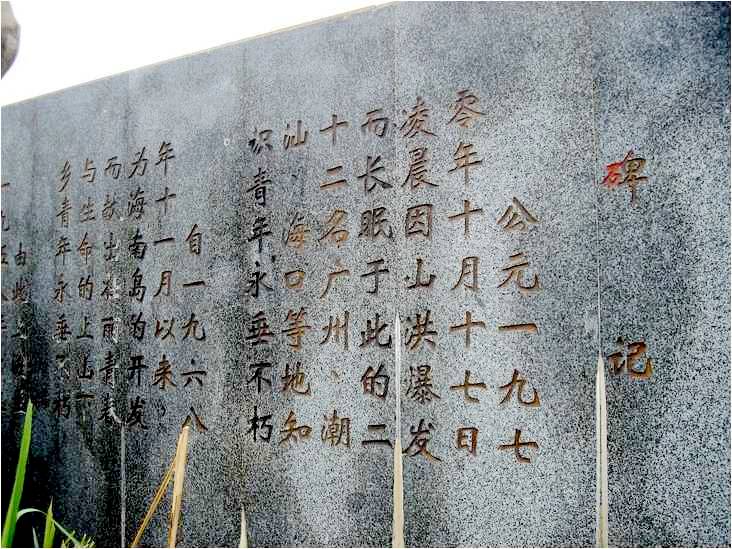 碑记
公元一九七
零年十月十七日
凌晨因山洪爆发
而长眠于此的二
十二名广州、潮
汕、海口等地知
识青年永垂不朽
自一九六八
年十一月以来
为海南岛的开发
而献出壮丽青春
与生命的上山下
乡青年永垂不朽
由此
一九五八年